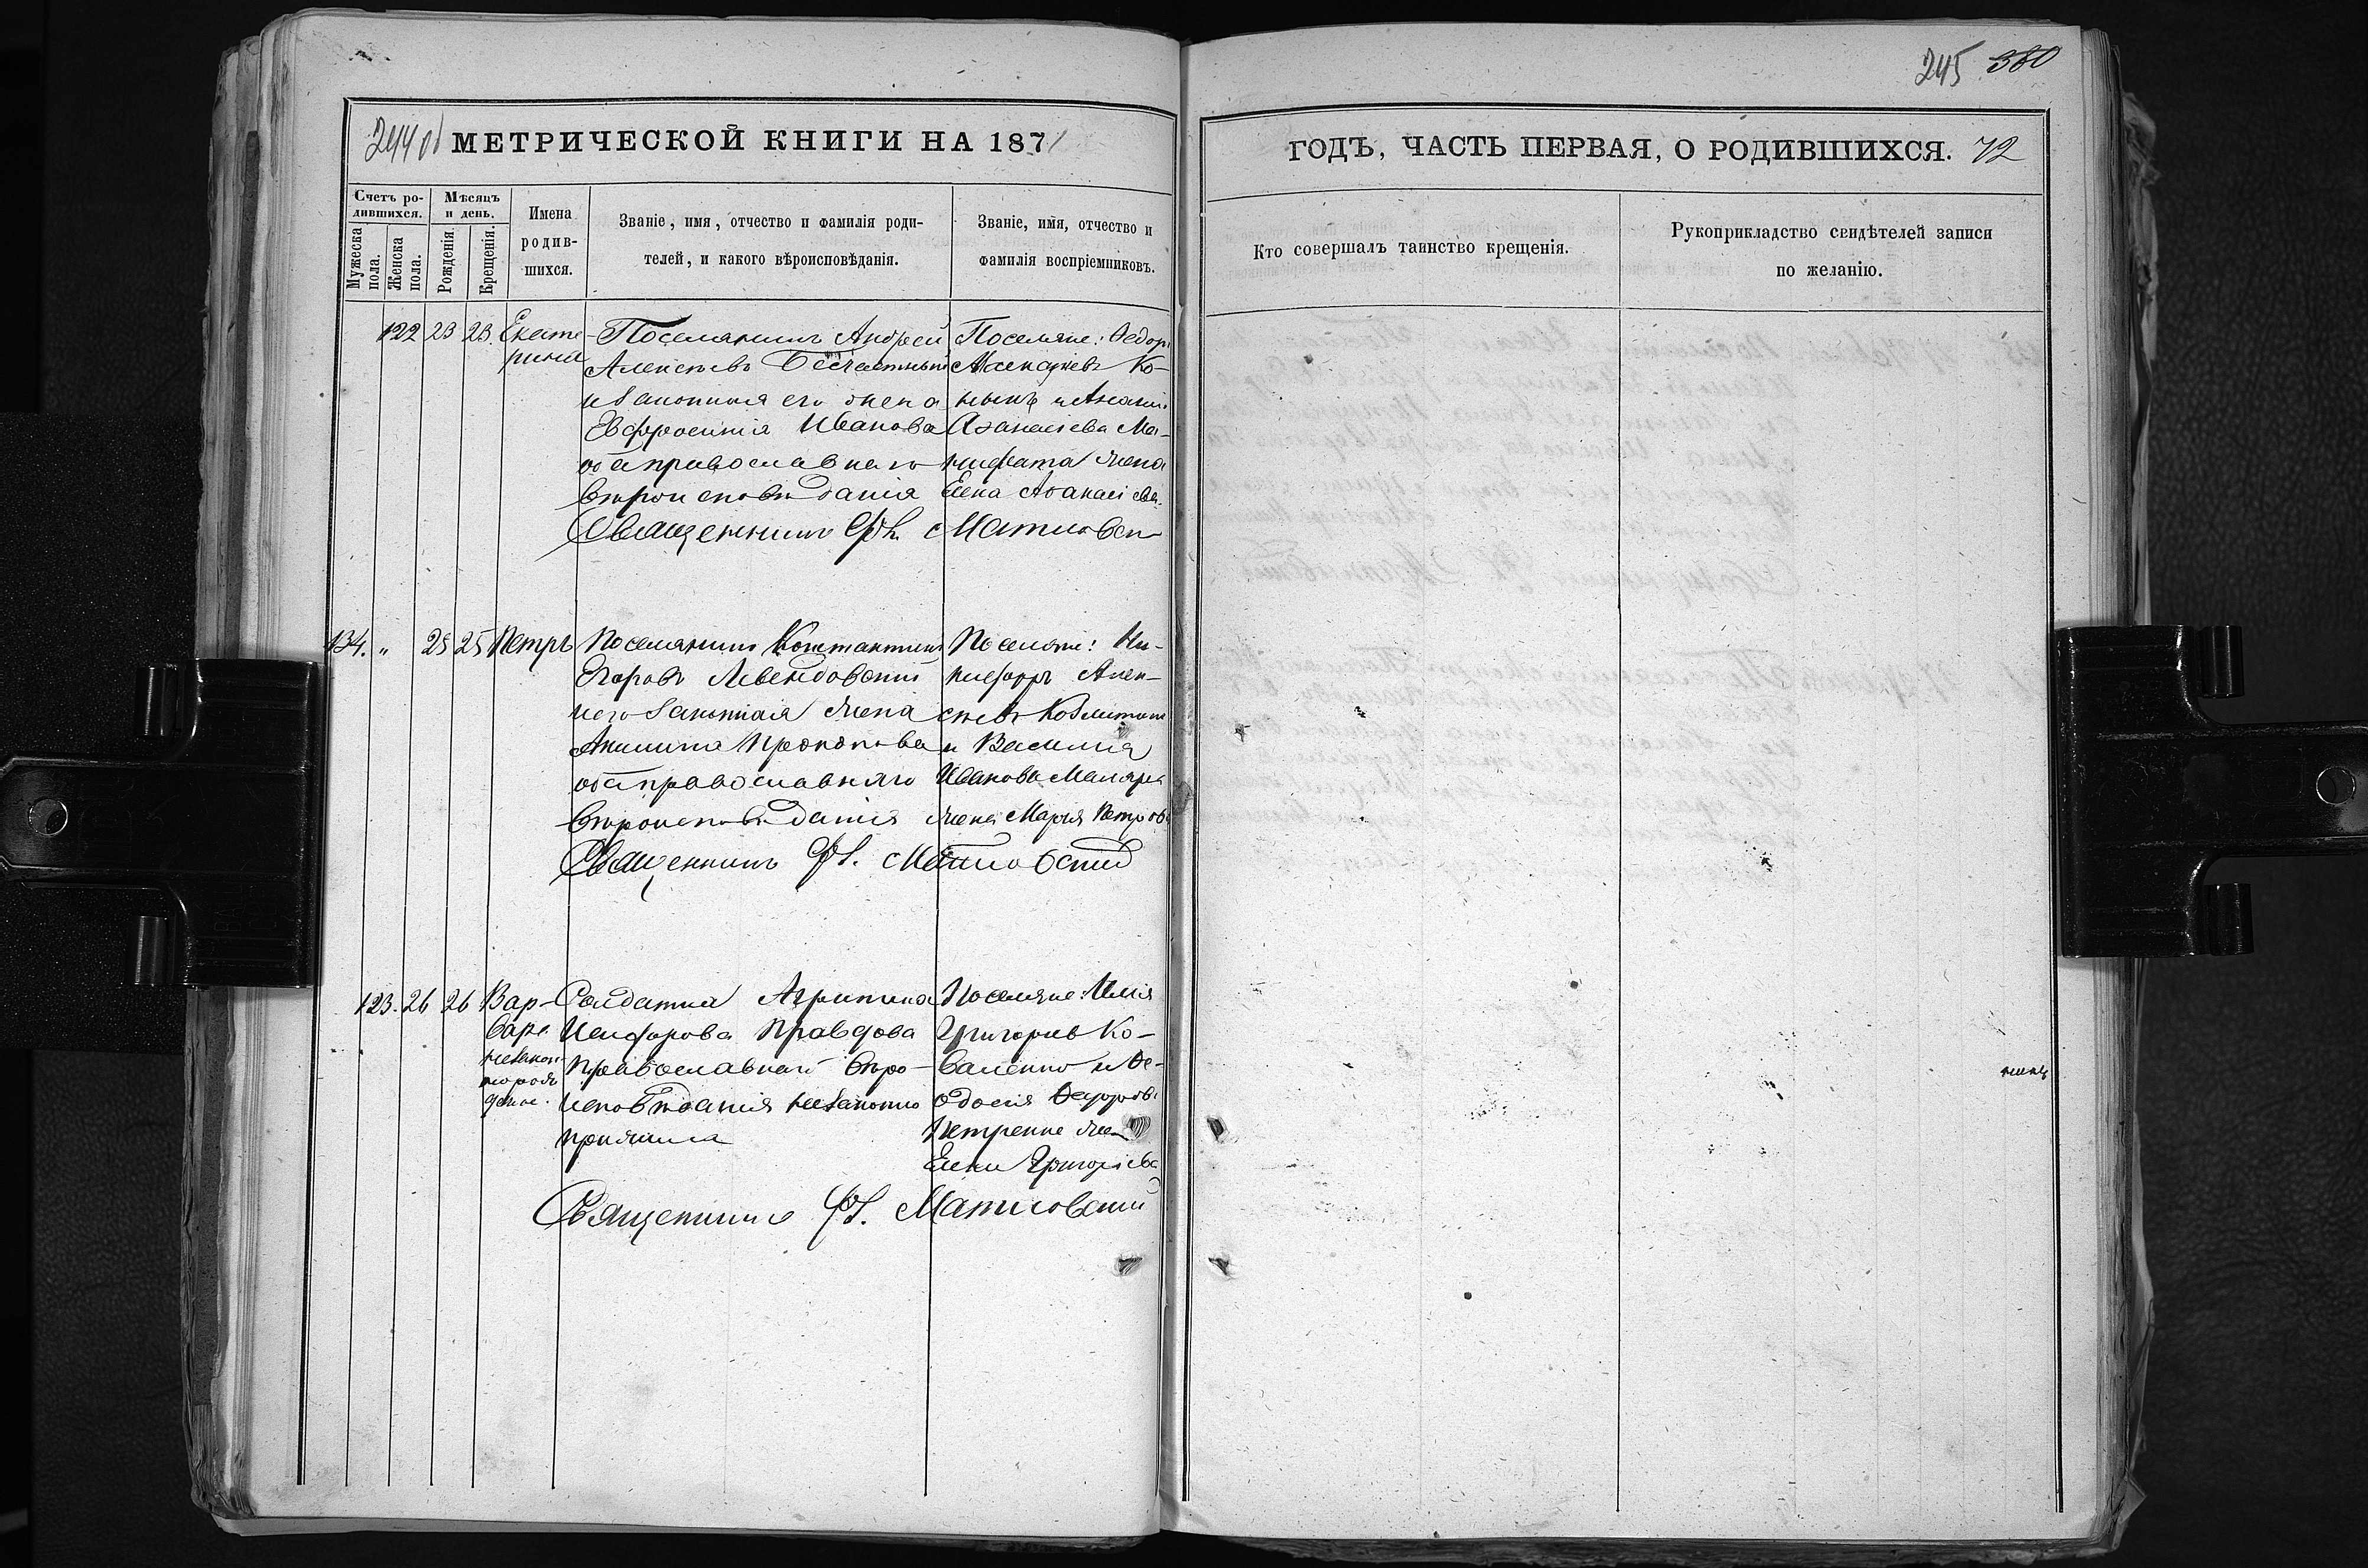 245 380
244 об МЕТРИЧЕСКОЙ КНИГИ НА 1871
ГОДЪ, ЧАСТЬ ПЕРВАЯ, О РОДИВШИХСЯ. 72
Счетъ ро-
дившихся.
Мужеска
пола.
Женска
пола.
Мѣсяцъ
и день.
Рожденія.
Крещенія.
Имена
родив-
шихся.
Званіе, имя, отчество и фамилія роди-
телей, и какого вѣроисповѣданія.
Званіе, имя, отчество и
фамилія воспріемниковъ.
Кто совершалъ таинство крещенія.
Рукоприкладство свидѣтелей записи
по желанію.
122 23 23. Екате
рина
Поселянинъ Андрей
Алексѣевъ Безчастный
и законная его жена
Евфросинія Иванова
оба православнаго
вѣроисповѣданія
Поселяне: Федоръ
Ко-
Аѳанасіева Ма-
жена
Елена Аѳанасіева
Священникъ Матковск
134. " 25 25 Петръ
Поселянинъ Константинъ
Егоровъ Левендовскій
и его законная жена
Акилина Прокопова
оба православнаго
вѣроисповѣданія
Поселяне: Ни-
кифоръ Алек-
сѣевъ
и Василия
Иванова Маляра
жена Марія Петрова
Священникъ Матковскій
123. 26 26 Вар-
вара
незакон-
но рож
денная.
Солдатка Агрипина
Никифорова Правдова
Православнаго вѣро-
исповѣданія незаконно
прижила
Поселяне: Илія
Григорьевъ Ко-
валенко и Ѳе-
одосія Федорова
Петренка жена
Елена Григоріева
Священникъ Матковскій